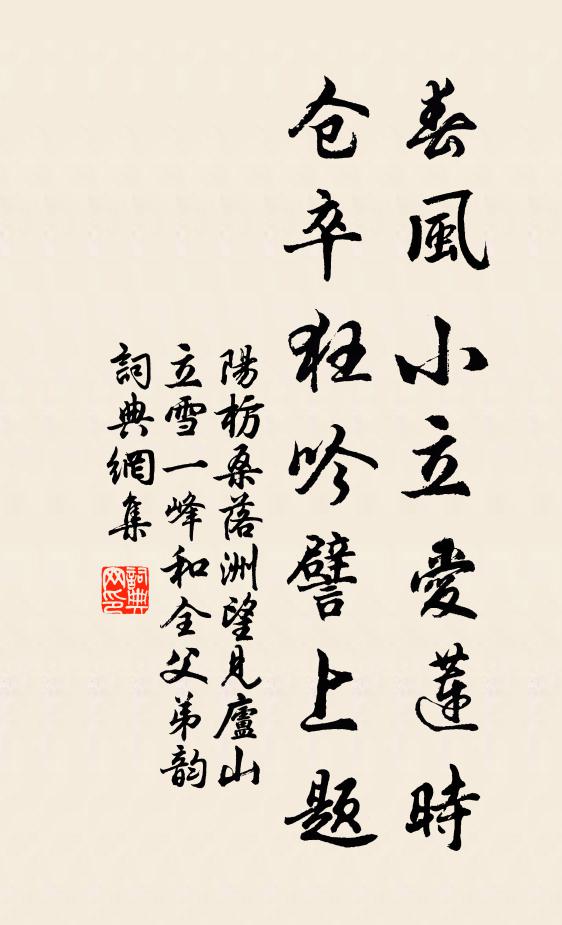 春風小立愛蓮時
仓卒狂吟譬上题
陽枋桑落洲望見廬山
立雪一峰和全父弟韵
詞典網集
詞典网印